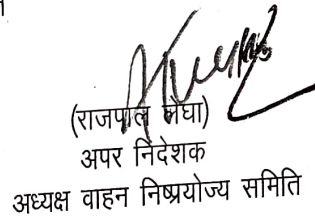 (राजपाल लेघा)
अपर निदेशक
अध्यक्ष वाहन निष्प्रयोज्य समिति